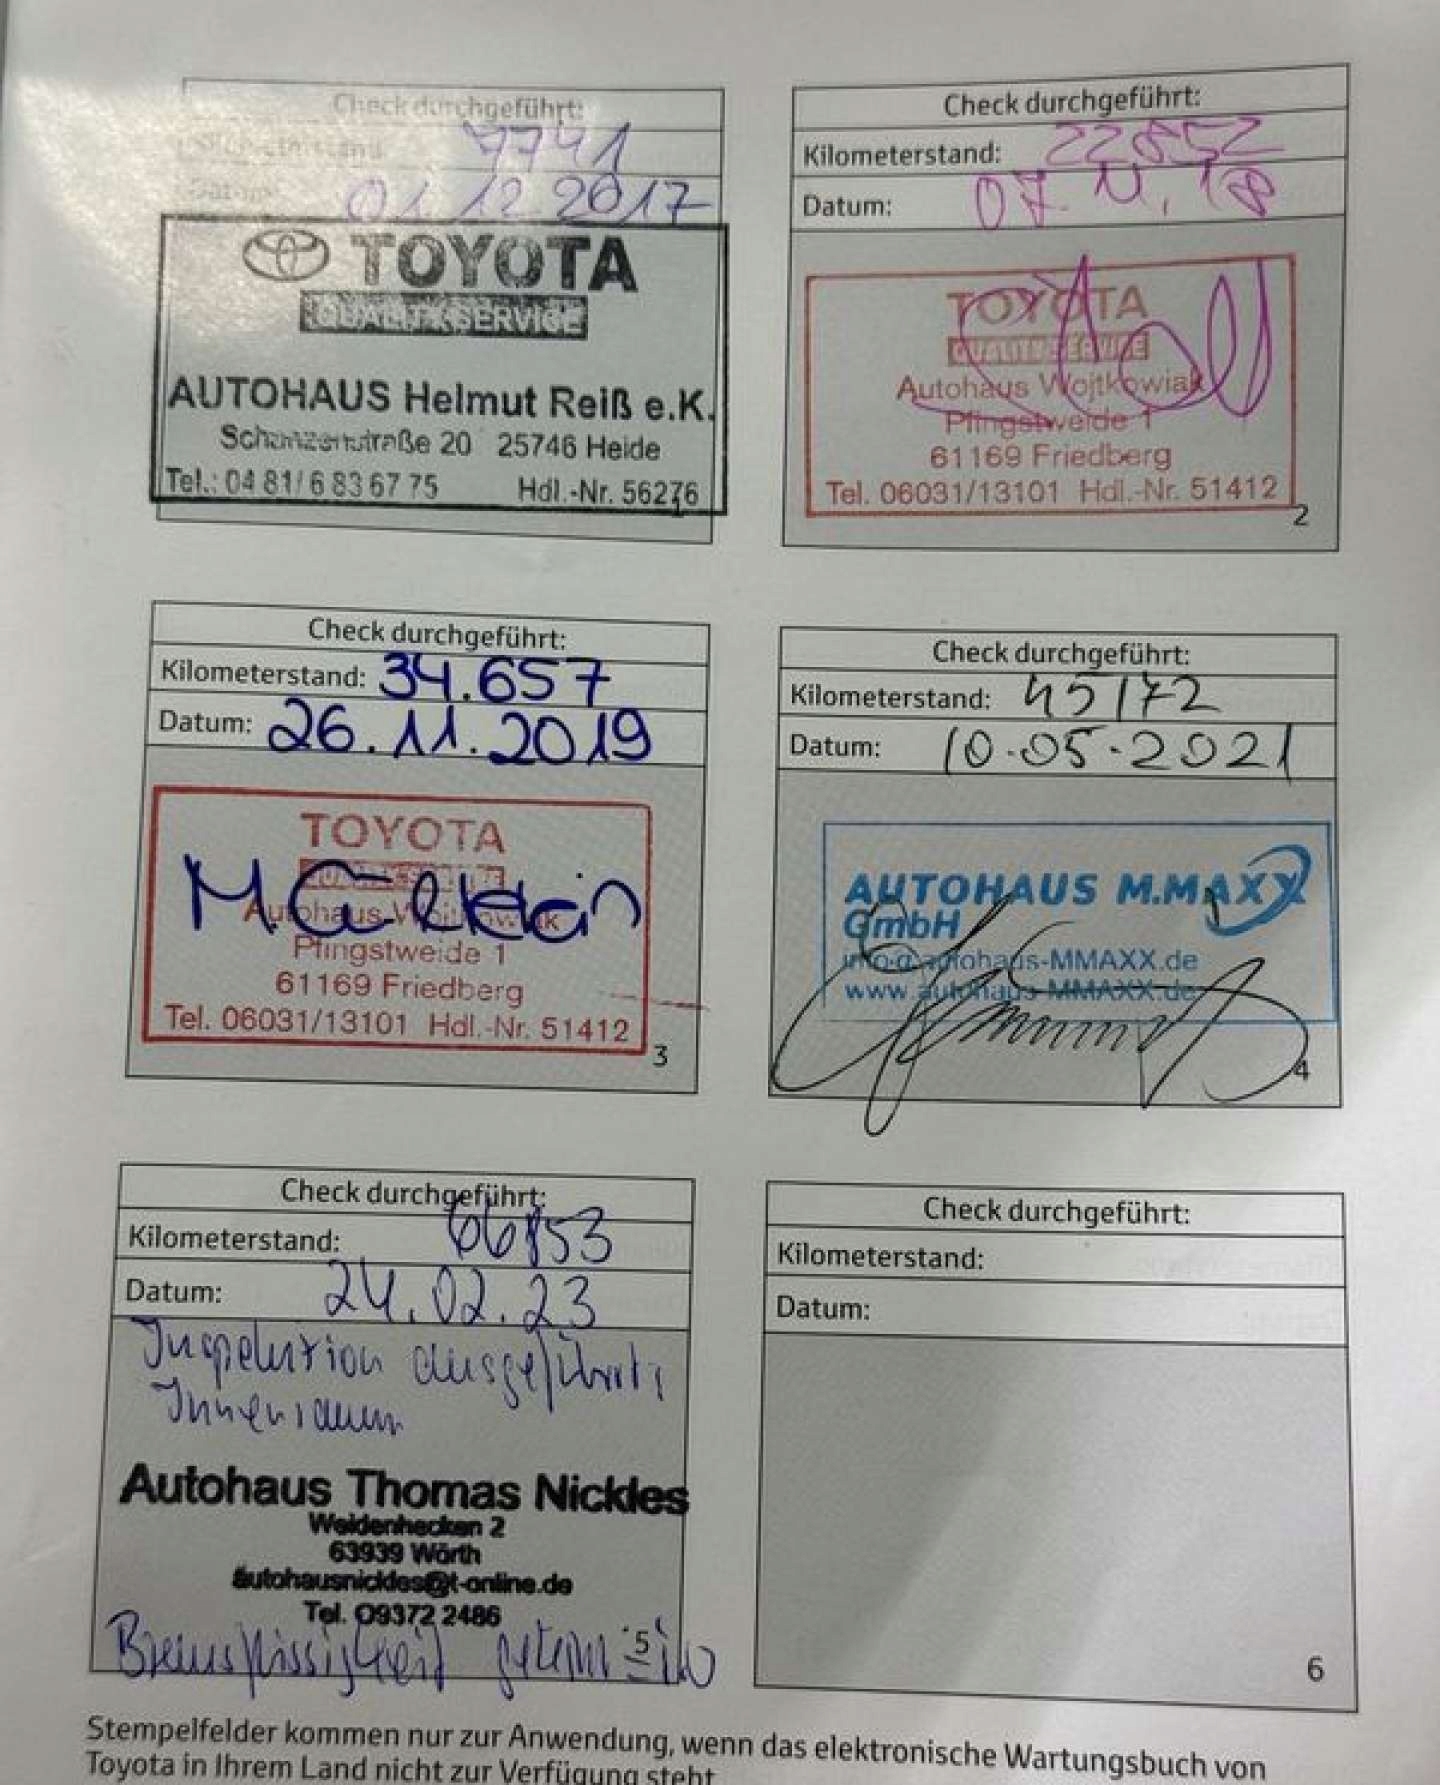 Check durchgeführt:
Kilometerstand: 7741
Datum: 01.12.2017
TOYOTA
QUALITY SERVICE
AUTOHAUS Helmut Reiß e.K.
Schanzenstraße 20 25746 Heide
Tel.: 04 81/6 83 67 75 Hdl.-Nr. 56276
Check durchgeführt:
Kilometerstand: 22852
Datum: 07.11.18
TOYOTA
QUALITY SERVICE
Autohaus Wojtkowiak
Pfingstweide 1
61169 Friedberg
Tel. 06031/13101 Hdl.-Nr. 51412
2
Check durchgeführt:
Kilometerstand: 34.657
Datum: 26.11.2019
TOYOTA
Autohaus Wojtkowiak
Pfingstweide 1
61169 Friedberg
Tel. 06031/13101 Hdl.-Nr. 51412
3
Check durchgeführt:
Kilometerstand: 45172
Datum: 10.05.2021
AUTOHAUS M.MAXX
GmbH
info@autohaus-MMAXX.de
www.autohaus-MMAXX.de
4
Check durchgeführt:
Kilometerstand: 66853
Datum: 24.02.23
Inspektion ausgeführt,
Innenraum
Autohaus Thomas Nickles
Weidenhecken 2
63939 Wörth
autohausnickles@t-online.de
Tel. 09372 2486
Bremsflüssigkeit
5
Check durchgeführt:
Kilometerstand:
Datum:
6
Stempelfelder kommen nur zur Anwendung, wenn das elektronische Wartungsbuch von
Toyota in Ihrem Land nicht zur Verfügung steht